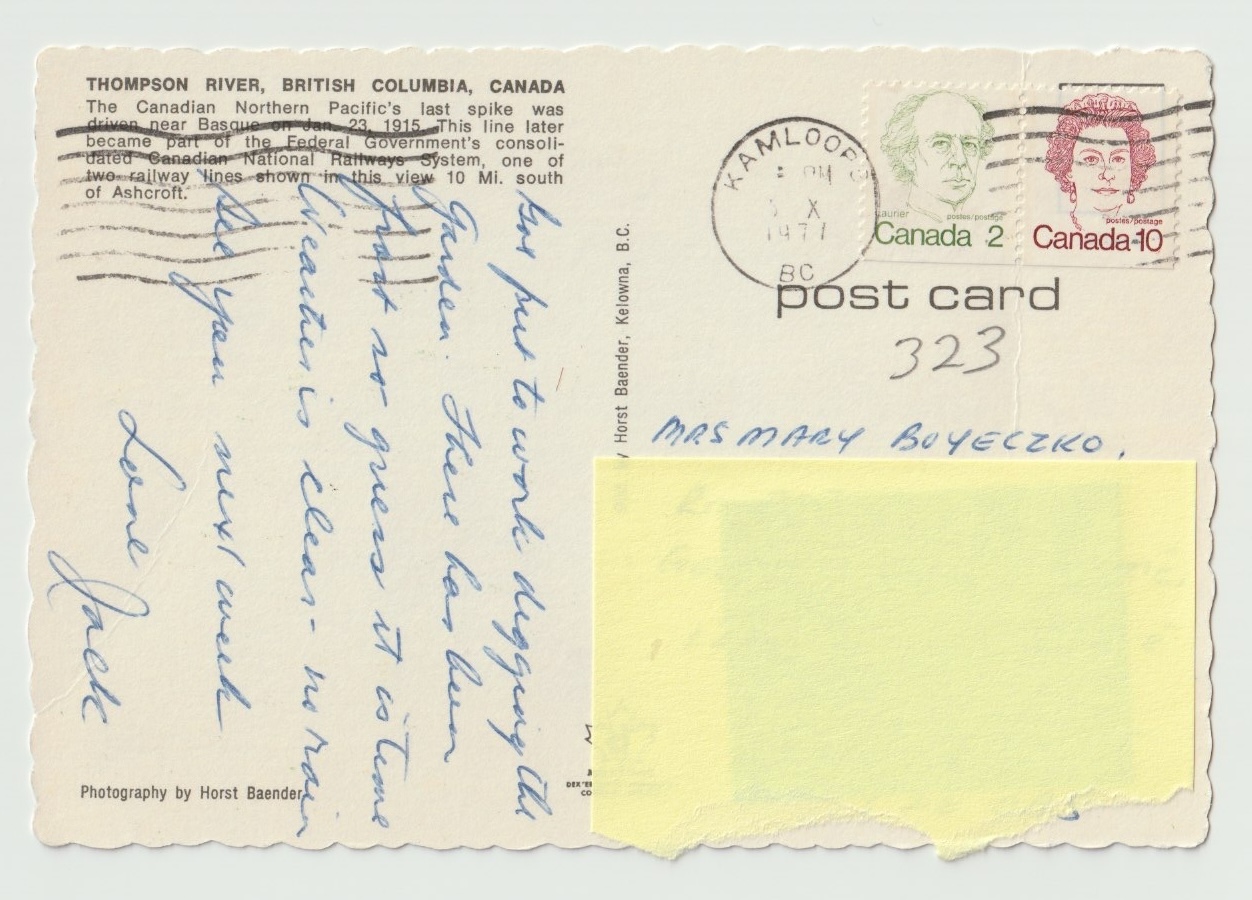 THOMPSON RIVER, BRITISH COLUMBIA, CANADA
The Canadian Northern Pacific's last spike was
driven near Basque on Jan. 23, 1915. This line later
became part of the Federal Government's consoli-
dated Canadian National Railways System, one of
two railway lines shown in this view 10 Mi. south
of Ashcroft.
Got put to work digging the
Garden. There has been
frost so guess it is time
Weather is clear - no rain
See you next week
Love
Jack
Photography by Horst Baender
Horst Baender, Kelowna, B.C.
KAMLOOPS
PM
X
1977
BC
Laurier
postes/postage
Canada 2
postes/postage
Canada 10
post card
323
MRS MARY BOYECZKO,